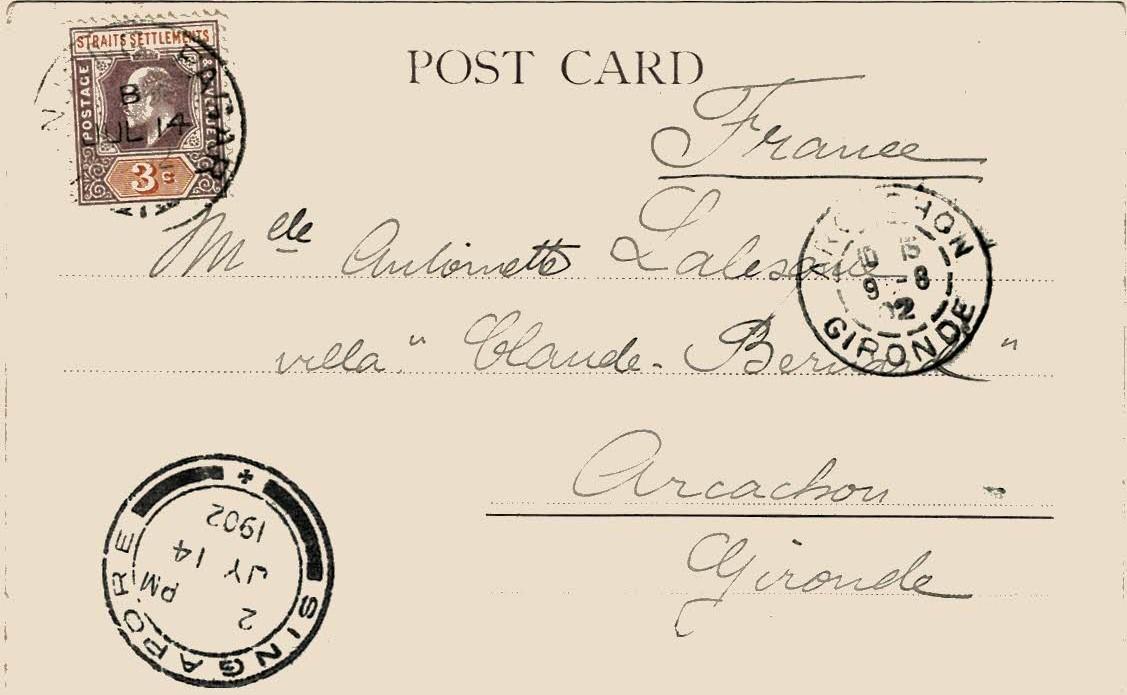 STRAITS SETTLEMENTS
POSTAGE & REVENUE
3c
B
JUL 14
POST CARD
France
Melle Antoinette
villa "Claude-Bernard"
Arcachon
Gironde
ARCACHON
9 -8
02
GIRONDE
SINGAPORE
2 PM
JY 14
1902